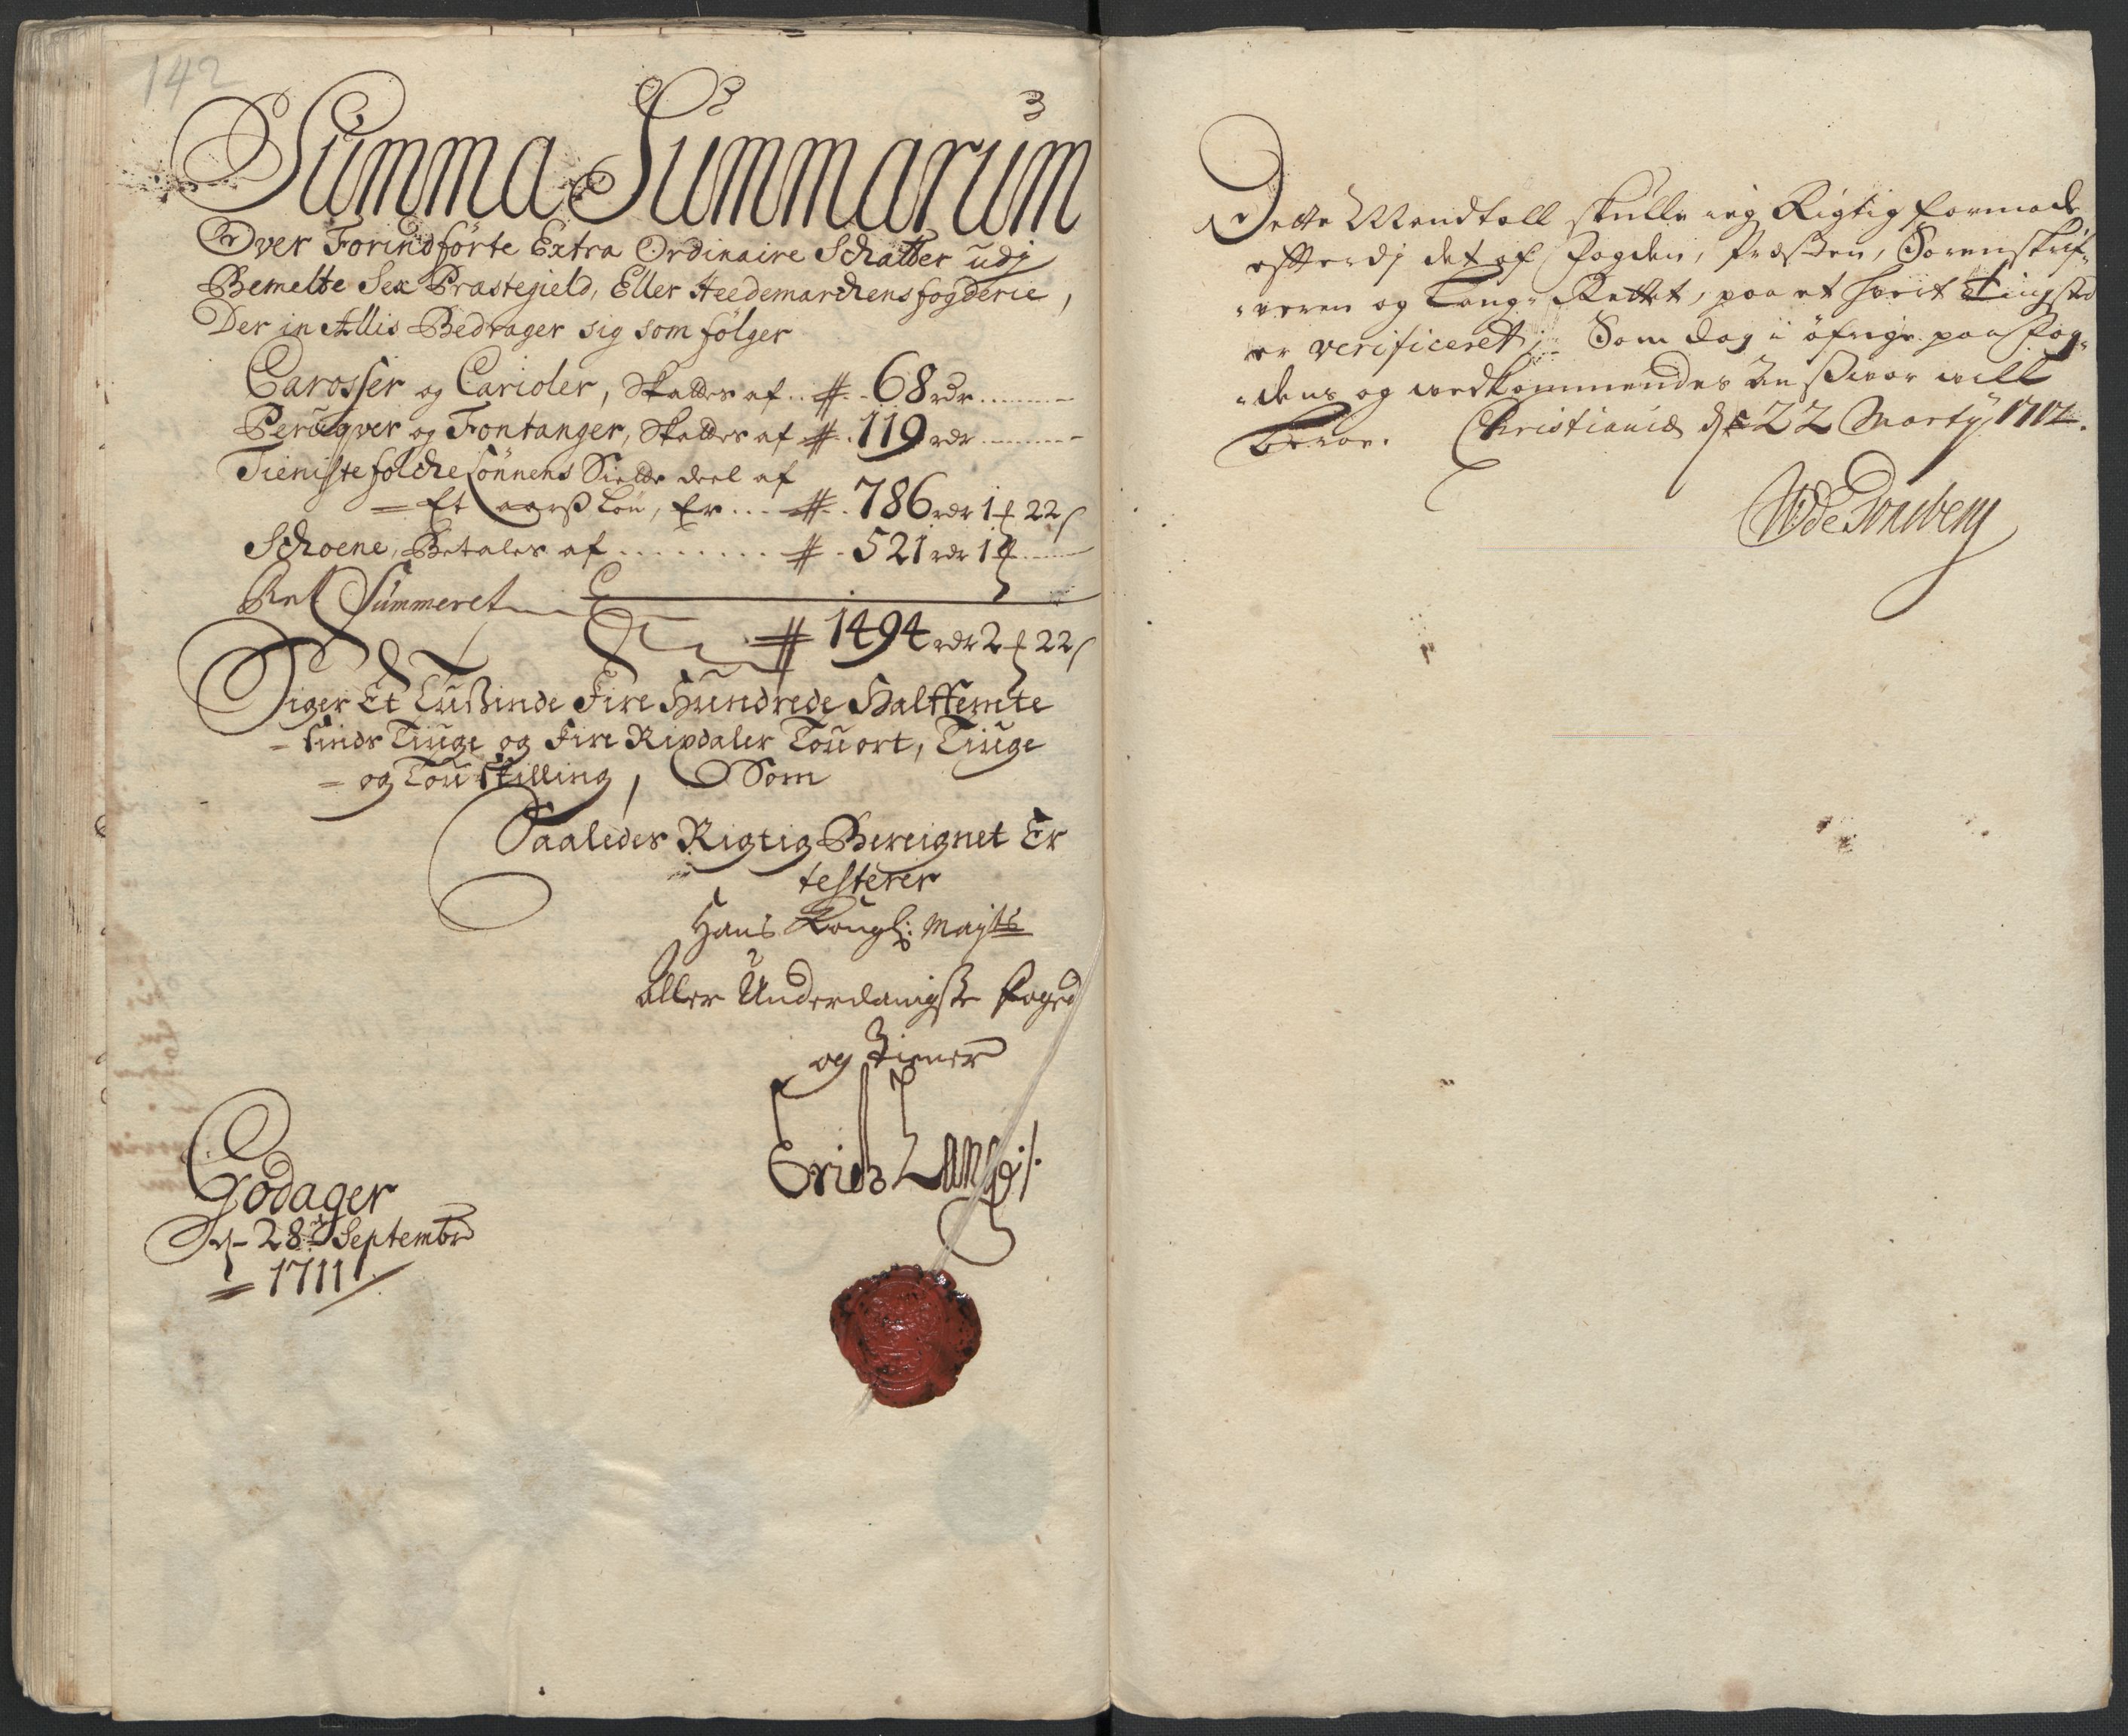 142
Summa Summarum
Over Forindførte Extra Ordinaire Schatter udj
Bemelte Sex Præstegield, Eller Heedemarchens fogderie,
Der in Allis Bedrager sig som følger
Carosser og Carioler, Skattes af .. # .. 68 rdr ........
Perugver og Fontanger, Skattes af # .. 119 rdr ........
Tieniste folche lønnens Siette deel af
= Et aarß Løn, Er ... # .. 786 rdr 1 ƒ 22 ß
Schoene, Betales af ........ # .. 521 rdr 1 ƒ ....
Ret Summeret
# 1494 rdr 2 ƒ 22 ß
Siger Et Tußinde Fire Hundrede Halffemte
= sinds Tiuge og Fire Rixdaler Tou ort, Tiuge
= og Tou skilling, Som
Saaledes Rigtig Bereignet Er
testerer
Hans Kongl: Mayts
aller Underdanigste foged
og Tiener
Erich Lange ./.
Godager
d- 28d Septembr
= 1711
Dette Mandtall skulle ieg Rigtig formode
efterdj det af fogden, Præsten, Sorenskrif-
veren og Laug-Rettet, paa et hvert Tingsted
er verificeret; Som dog i øfrige paa fog-
dens og vedkommendes Ansvar vill
beroe. Christiania d 22 Marty 1712.
WdeTonsberg